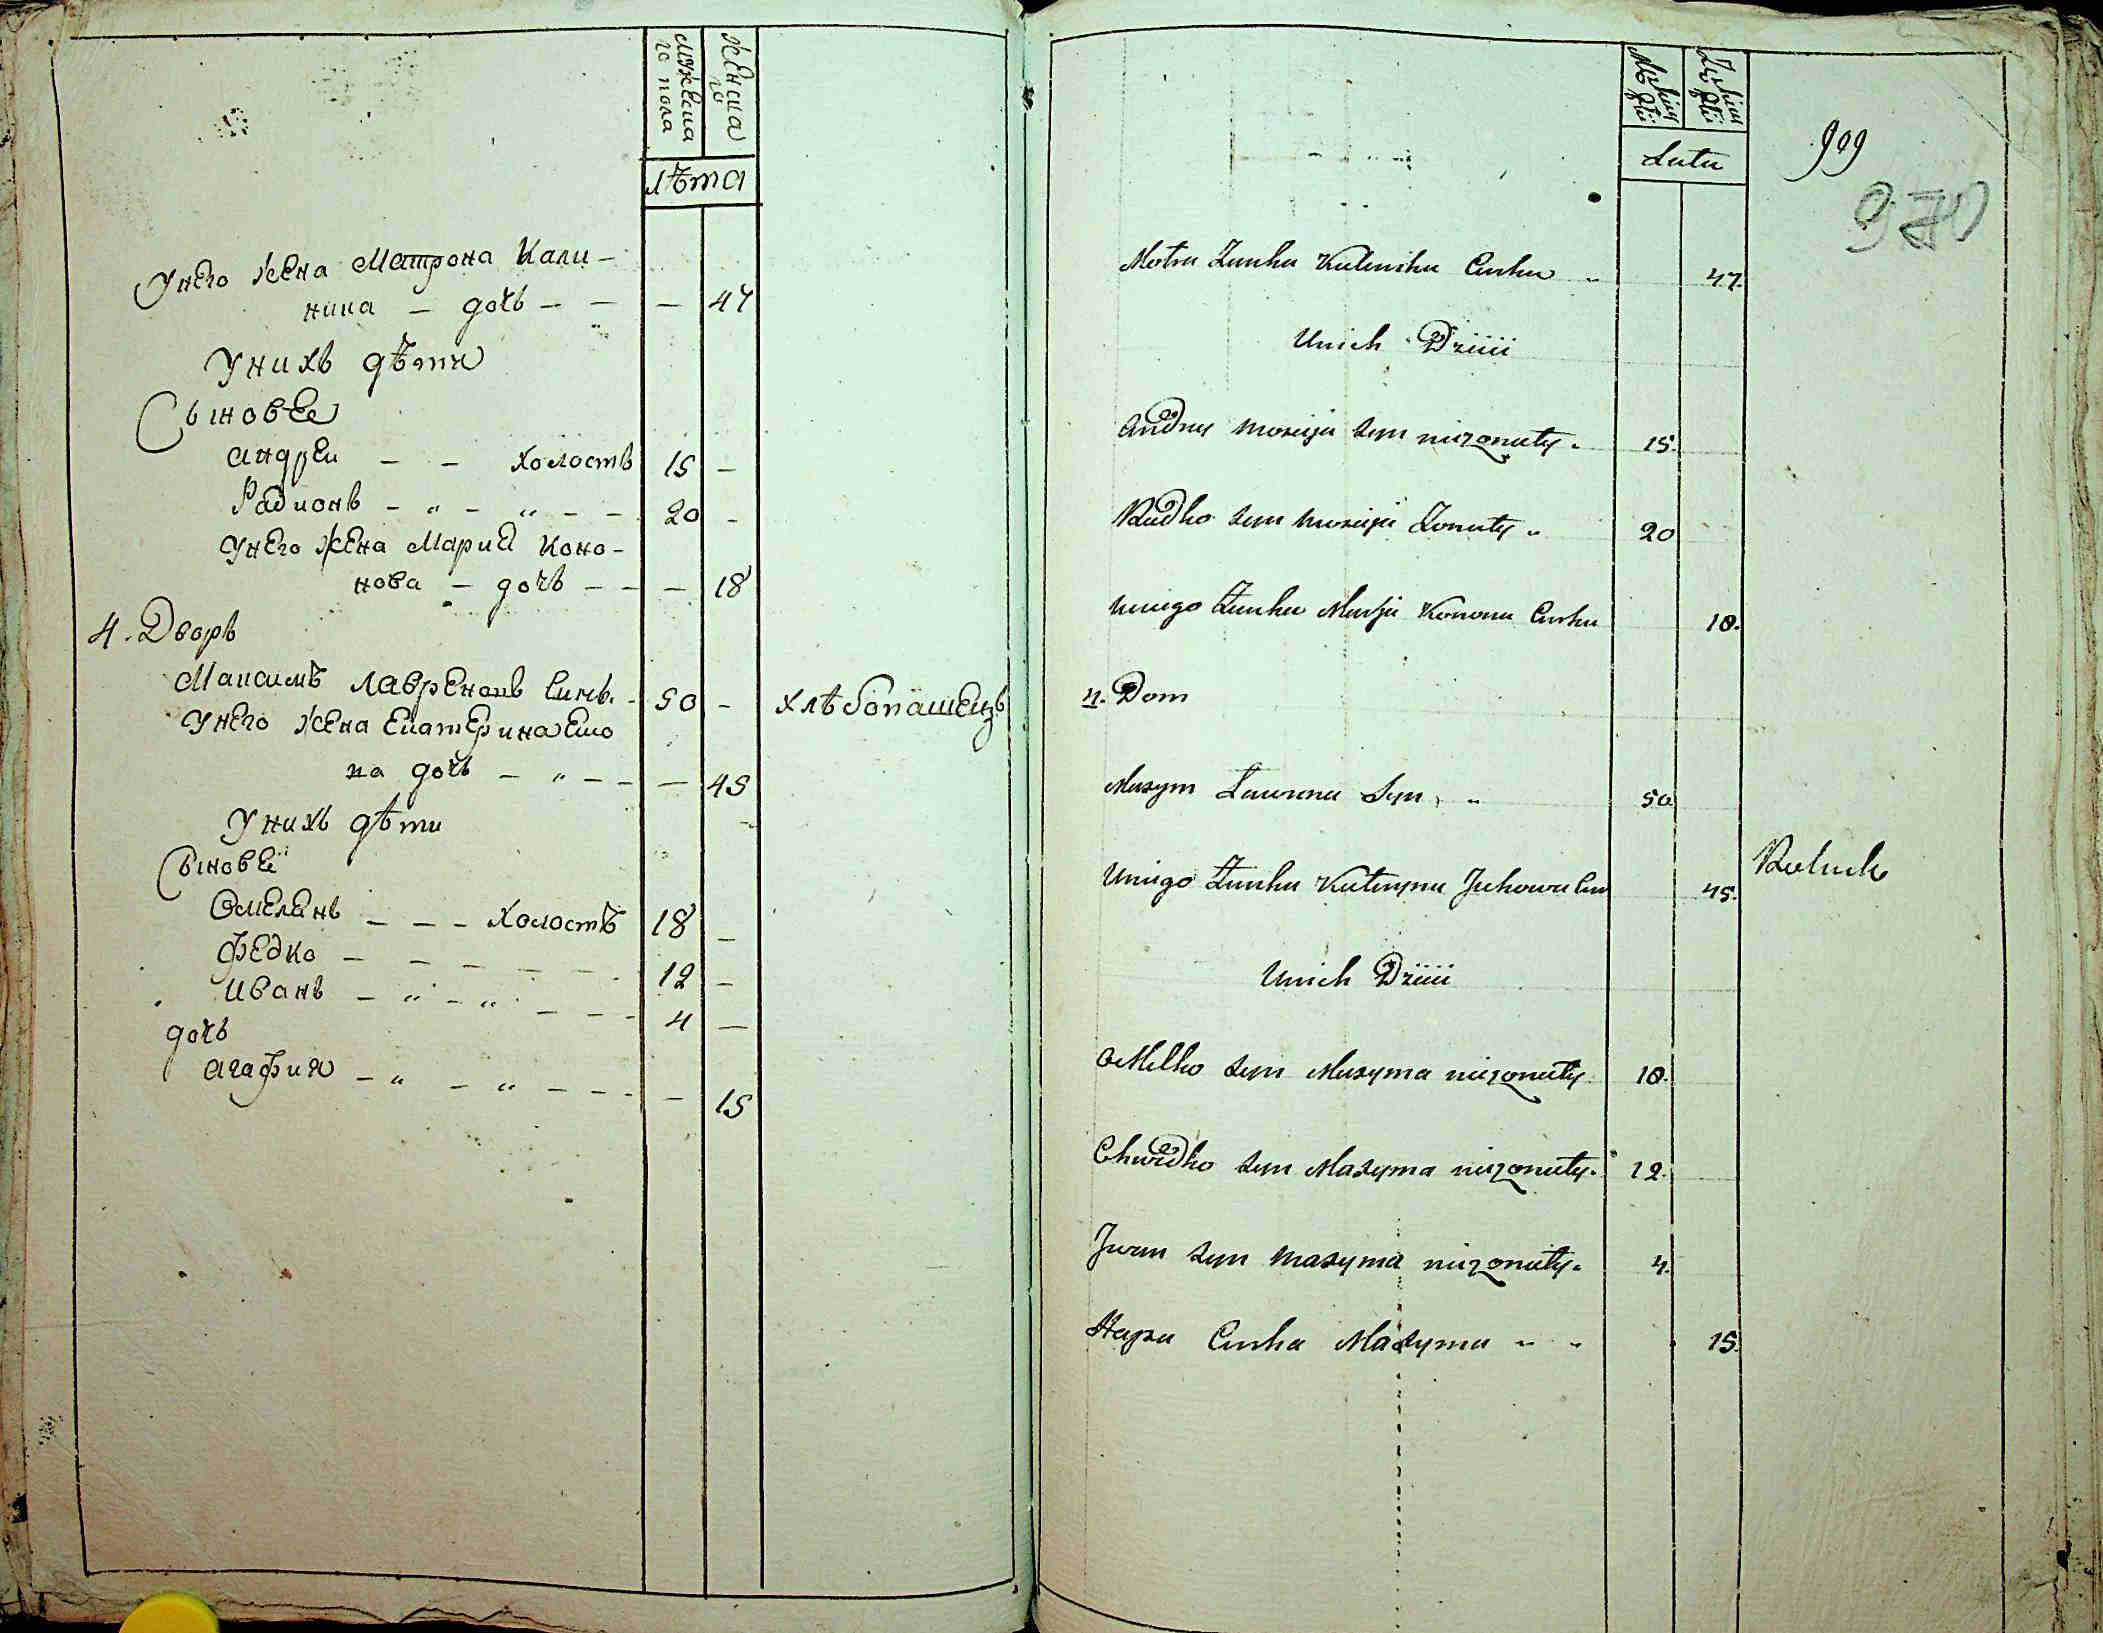 мужеска
го пола
женска
го
лѣта
Унего жена Матрона Кали–
нина – дочь – – – 47
Унихъ дѣти
Сыновѣе
Андреи – – холостъ 15 –
Радионъ – „ – „ – – 20 –
Унего жена Мария Коно–
нова – дочь – – – 18
4. Дворъ
Максимъ Лавреновъ Синъ. – 50 – хлѣбопашецъ
Унего жена Екатерина
на дочь – „ – – – 45
Унихъ дѣти
Сыновѣе
Омелянъ – – – Холостъ 18 –
Федко – – – – – – 12 –
Иванъ – „ – „ – – – 4 –
дочь
Агафия – „ – „ – – – – 15
Latu
909
970
Motra Zunka Kalinika Curka „ 47.
Unich Dziiii
Andruy Mosieja Syn niezonuty. 15.
Radko Syn Mosieja Zonuty „ 20
Uniego Zunka Marja Konona Curka 18.
4. Dom
Maxym Laurena Syn „ 50
Uniego Zunka Kateryna Jukowa Cur 45. Rolnik
Unich Dziiii
OMelko Syn Maxyma niezonuty. 18.
Chwedko Syn Maxyma niezonuty. 12.
Jwan Syn Maxyma niezonuty. 4.
Hapza Curka Maxyma „ „ 15.